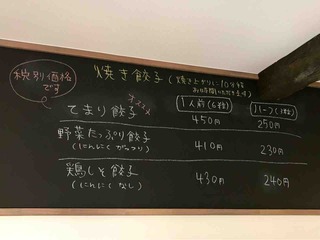 税別価格
です
焼き餃子(焼き上がりに10分程
お時間いただきます)
オススメ
1人前(6個)
ハーフ(3個)
てまり餃子
450円
250円
野菜たっぷり餃子
(にんにくがっつり)
410円
230円
鶏しそ餃子
(にんにくなし)
430円
240円